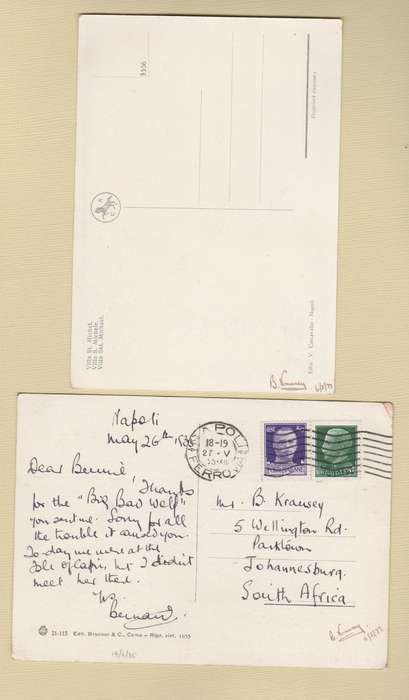 3556
Proprietà riservata
Villa St. Michel.
Villa S. Michele.
Villa Sait. Michael.
Ediz. V. Carcavallo - Napoli
B. Krausey
Napoli
May 26th 1935
Dear Bennie
Thanks
for the "Big Bad Wolf"
you sent me. Sorry for all
the trouble it caused you.
To-day we were at the
Isle of Capri, but I didn't
meet her there.
Yrs.
Bernard.
NAPOLI
18-19
27·V
FERROVIA
Mr. B Krausey
5 Wellington Rd.
Parktown
Johannesburg.
South Africa
B. Krausey
21-115 Edit. Brunner & C., Como - Ripr. viet. 1935